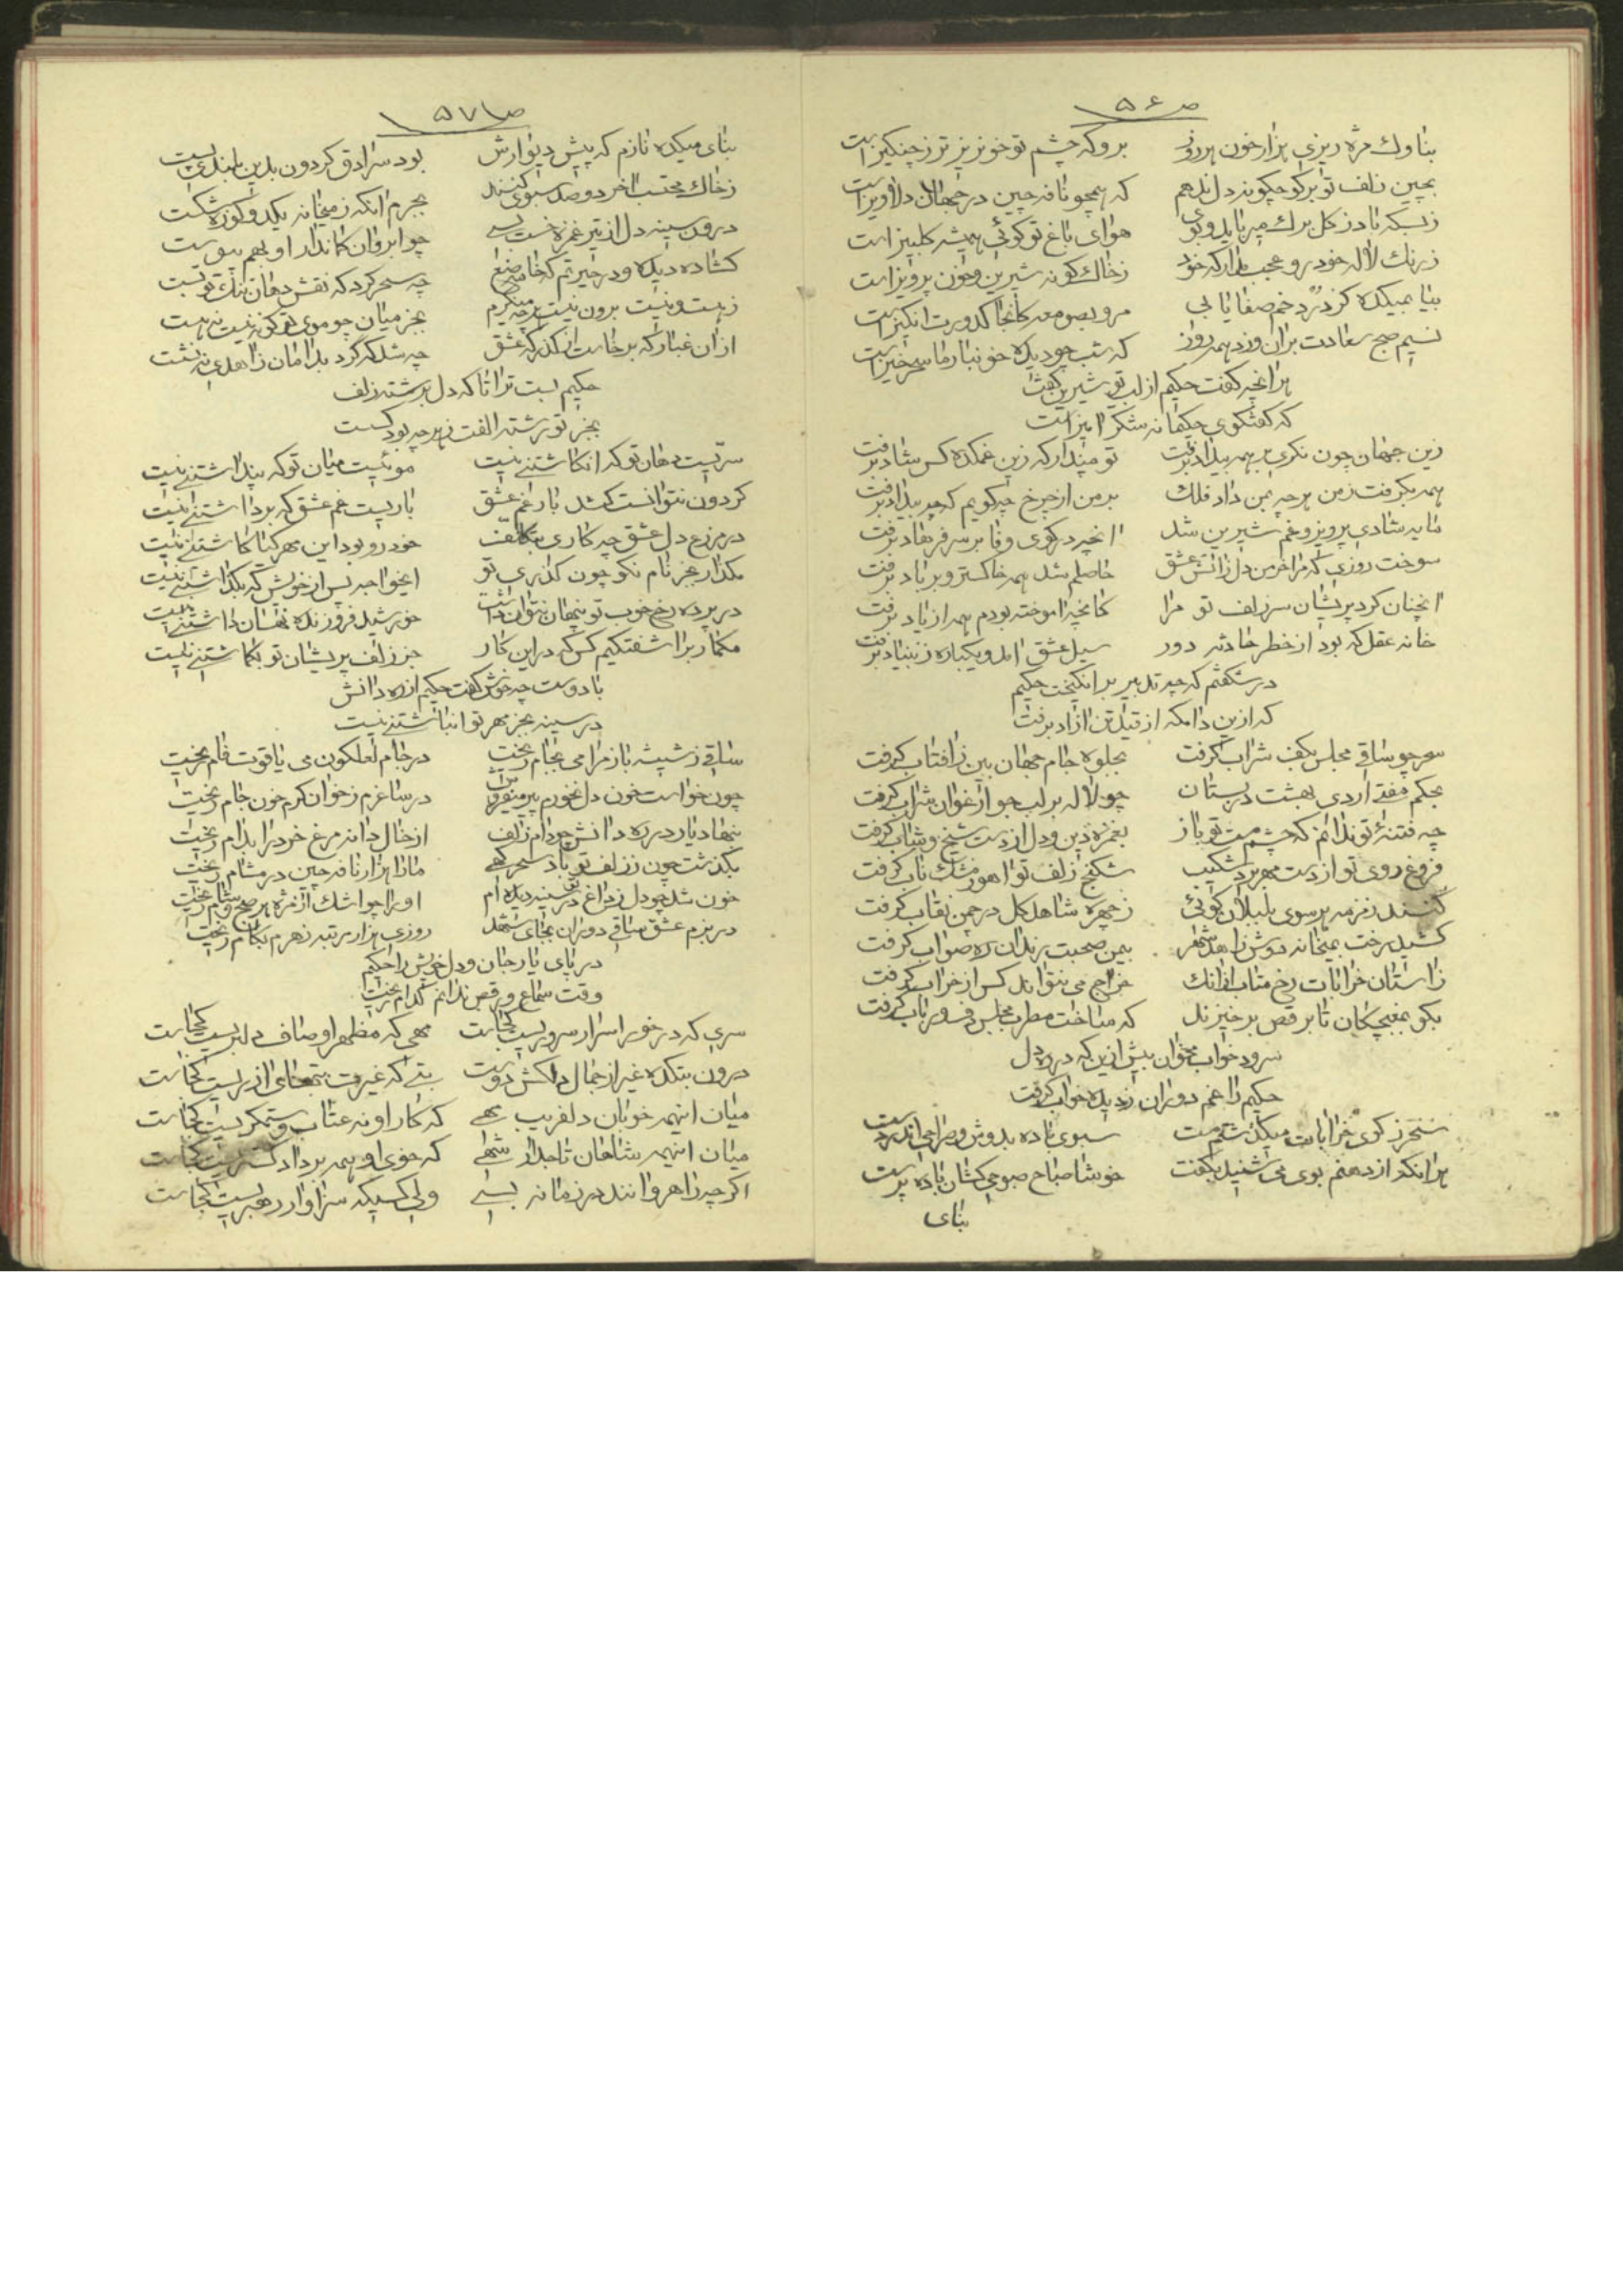 ص ۵۶
بناوک مژه ریزی هزار خون هر روز برو که چشم تو خونریز تر ز چنگیز است
بچین زلف تو بر کو چگونه دل ندهم که همچو نافه چین در جهان دلاویز است
ز بسکه باد ز گل برک میرباید و بوی هوای باغ تو کوئی همیشه گلبیز است
ز رنک لاله خود رو عجب مدار که خود ز خاک گونه شیرین و خون پرویز است
بیا بمیکده کز درد خم صفا یابی مرو بصومعه کانجا کدورت انگیز است
نسیم صبح سعادت بران وزد همه روز که شب چو دیده خونبار ما سحرخیز است
هرانچه کفت حکیم از لب تو شیرین کفت
که کفتکوی حکیمانه شکر امیز است
زین جهان چون نکری بر همه بیداد برفت تو مپندار که زین غمکده کس شاد برفت
همه بکرفت ز من هر چه بمن داد فلک بر من از چرخ چه کویم که چه بیداد برفت
مایه شادی پرویز و غم شیرین شد انچه در کوی وفا بر سر فرهاد برفت
سوخت روزی که مرا خرمن دل زاتش عشق حاصلم شد همه خاکستر و بر باد برفت
انچنان کرد پریشان سر زلف تو مرا کانچه اموخته بودم همه از یاد برفت
خانه عقل که بود از خطر حادثه دور سیل عشق امد و یکباره ز بنیاد برفت
در شکفتم که چه تدبیر برانکیخت حکیم
که ازین دامکه از قید تن ازاد برفت
سحر چو ساقی مجلس بکف شراب کرفت بجلوه جام جهان بین ز افتاب کرفت
بحکم مفتی اردی بهشت در بستان چو لاله بر لب جو ارغوان شراب کرفت
چه فتنهٔ تو ندانم که چشم مست تو باز بغمزه دین و دل از دست شیخ و شاب کرفت
فروغ روی تو از دست مهر برد شکیب شکنج زلف تو از اهو مشک ناب کرفت
کنند زمزمه هر سوی بلبلان کوئی ز چهره شاهد کل در چمن نقاب کرفت
کشید رخت بمیخانه دوش زاهد شهر بیمن صحبت رندان ره صواب کرفت
ز استان خرابات رخ متاب ازانک خراج می نتواند کس از خراب کرفت
بکو بمغبچکان تا برقص برخیزند که ساخت مطرب مجلس دف و رباب کرفت
سرود خواب مخوان بیش ازین که در ره دل
حکیم را غم دوران ز دیده خواب کرفت
سحر ز کوی خرابات میکذشتم مست سبوی باده بدوش و صراحی اندر دست
هرانکه از دهنم بوی می شنید بکفت خوشا صباح صبوحی کشان باده پرست
بنای
ص ۵۷
بنای میکده نازم که پیش دیوارش بود سرادق کردون بدین بلندی پست
ز خاک محتسب اخر دو صد سبوی کنند بجرم انکه ز میخانه یکدو کوزه شکست
درون سینه دل از تیر غمزه خست بسی چو ابروان کماندار او بهم پیوست
کشاده دیده و در حیرتم که خامه صنع چه سحر کرد که نقش دهان تنک تو بست
ز هست و نیست برون نیست هر چه مینکرم بجز میان چو موی تو کو نه نیست نه هست
ازان غبار که برخاست از کذرکه عشق چه شد که کرد بدامان زاهدی ننشست
حکیم بست ترا تا که دل برشته زلف
بجز تو رشته الفت ز هر چه بود کسست
سریست دهان تو که انکاشتنی نیست موئیست میان تو که پنداشتنی نیست
کردون نتوانست کشد بار غم عشق باریست غم عشق که برداشتنی نیست
در مزرع دل عشق چه کاری بتکلف خودرو بود این مهر کیا کاشتنی نیست
مکذار بجز نام نکو چون کذری تو ایخواجه پس از خویش که بکذاشتنی نیست
در پرده رخ خوب تو پنهان نتوان داشت خورشید فروزنده نهان داشتنی نیست
مکمار بر اشفتکیم کس که درین کار جز زلف پریشان تو بکماشتنی نیست
با دوست چه خوش کفت حکیم از ره دانش
در سینه بجز مهر تو انباشتنی نیست
ساقی ز شیشه باز مرا می بجام ریخت در جام لعلکون می یاقوت فام ریخت
چون خواست خون دل بخورم پیر میفروش در ساغرم ز خوان کرم خون جام ریخت
بنهاد یار در ره دانش چو دام زلف از خال دانه مرغ خرد را بدام ریخت
بکذشت چون ز زلف تو باد سحرکهی ما را هزار نافه چین در مشام ریخت
خون شد چو دل ز داغ تو در سینه دیده ام او را چو اشک از مژه هر صبح و شام ریخت
در بزم عشق ساقی دوران بجای شهد روزی هزار مرتبه زهرم بکام ریخت
در پای یار جان و دل خویش را حکیم
وقت سماع و رقص ندانم کدام ریخت
سری که در خور اسرار سروریست کجاست مهی که مظهر اوصاف دلبریست کجاست
درون بتکده غیر از جمال دلکش دوست بتی که غیرت بتهای ازریست کجاست
میان اینهمه خوبان دلفریب مهی که کار او نه عتاب و ستمکریست کجاست
میان اینهمه شاهان تاجدار شهی که خوی او همه بر داد کستریست کجاست
اکرچه راهروانند در زمانه بسی ولی کسیکه سزاوار رهبریست کجاست